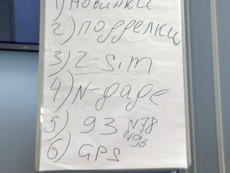 1) новинки
2) подделки
3) 2-sim
4) N-gage
5) 93 N78 N96
6) GPS